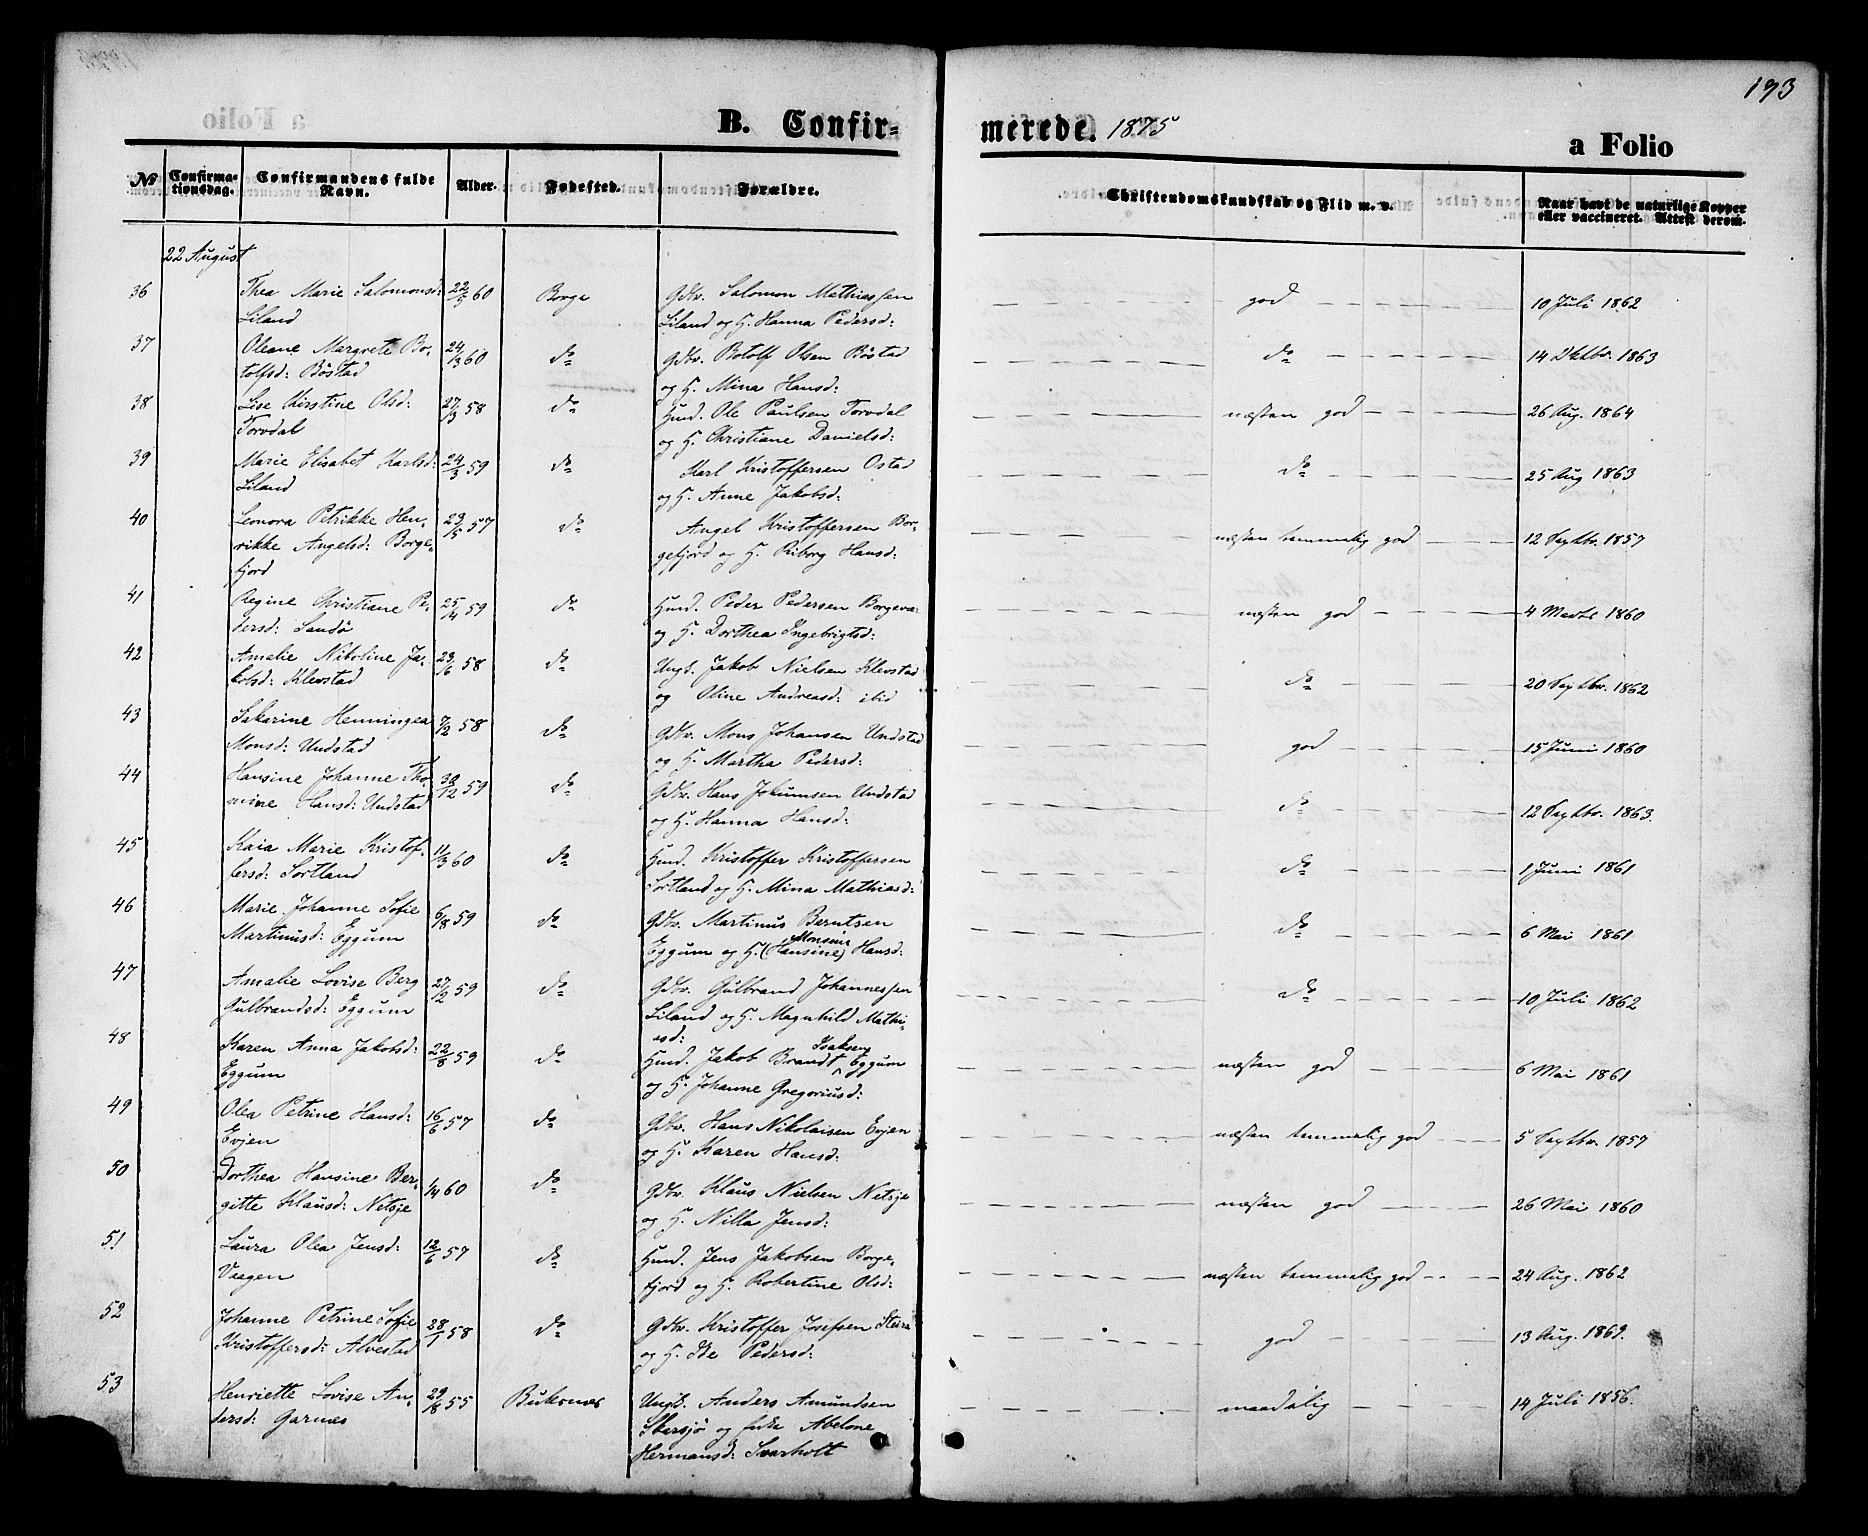 193
B. Confir-
merede. 1875
a Folio
No
Confirma-
tionsdag.
Confirmandens fulde
Navn.
Alder.
Fødested.
Forældre.
Christendomskundskab og Flid m. v.
Naar havt de naturlige Kopper
eller vaccineret. Attest derom.
22 August
36 Thea Marie Salomonsd: 22/5 60 Borge Gdbr. Salomon Mathiassen god 10 Juli 1862
Liland Liland og H. Hanna Pedersd:
37 Oleane Margrete Bo- 24/3 60 do Gdbr. Botolf Olsen Böstad do 14 Oktbr. 1863
tolfsd: Böstad og H. Mina Hansd:
38 Lise Kirstine Olsd: 27/3 58 do Husd. Ole Paulsen Torvdal næsten god 26 Aug. 1864
Torvdal og H. Christiane Danielsd:
39 Marie Elisabet Karlsd: 24/3 59 do Karl Kristoffersen Ostad do 25 Aug 1863
Liland og H. Anne Jakobsd:
40 Leonora Petrikke Hen- 23/5 57 do Angel Kristoffersen Bor- næsten temmelig god 12 Septbr. 1857
rikke Angelsd: Borge- gefjord og H. Riborg Hansd:
fjord
41 Regine Christiane Pe- 25/4 59 do Husd. Peder Pedersen Borgevæ- næsten god 4 Marts 1860
dersd: Sandö og H. Dorthea Ingebrigtsd:
42 Amalie Nikoline Ja- 23/6 58 do Ungk. Jakob Nielsen Klevstad do 20 Septbr. 1862
kobsd: Klevstad og Oline Andreasd: ibid
43 Sakarine Henningea 7/2 58 do Gdbr. Mons Johansen Undstad god 15 Juni 1860
Monsd: Undstad og H. Martha Pedersd:
44 Hansine Johanne Tho- 30/12 59 do Gdbr. Hans Jokumsen Undstad do 12 Septbr. 1863.
mine Hansd: Undstad og H. Hanna Hansd:
45 Kaia Marie Kristof- 11/3 60 do Husd. Kristoffer Kristoffersen do 1 Juni 1861
fersd: Sortland Sortland og H. Mina Mathiasd:
46 Marie Johanne Sofie 6/8 59 do Gdbr. Martinus Berntsen do 6 Mai 1861
Monsine
Martinusd: Eggum Eggum og H. (Hansine) Hansd:
47 Amalie Lovise Berg 27/2 59 do Gdbr. Gulbrand Johannessen do 10 Juli 1862
Gulbrandsd: Eggum Liland og H. Magnhild Mathi-
asd:
Isaksen
48 Karen Anna Jakobsd: 22/8 59 do Husd. Jakob Brandt Eggum næsten god 6 Mai 1861
Eggum og H. Johanne Gregoriusd:
49 Olea Petrine Hansd: 16/6 57 do Gdbr. Hans Nikolaisen Evjen næsten temmelig god 5 Septbr. 1857
Evjen og H. Karen Hansd:
50 Dorthea Hansine Ber- 1/4 60 do Gdbr. Klaus Nielsen Netsje næsten god 26 Mai 1860
gitte Klausd: Netsje og H. Nilla Jensd:
51 Laura Olea Jensd: 12/6 57 do Husd. Jens Jakobsen Borge- næsten temmelig god 24 Aug. 1862
Vaagen fjord og H. Robertine Olsd:
52 Johanne Petrine Sofie 28/1 58 do Gdbr. Kristoffer Josefsen Steira god 13 Aug. 1869.
Kristoffersd: Alvestad og H. Ide Pedersd:
53 Henriette Lovise An- 29/8 55 Buksnes Ungk. Anders Amundsen maadelig 14 Juli 1856.
dersd: Garnæs og Abelone
Hermansd: Svarholt